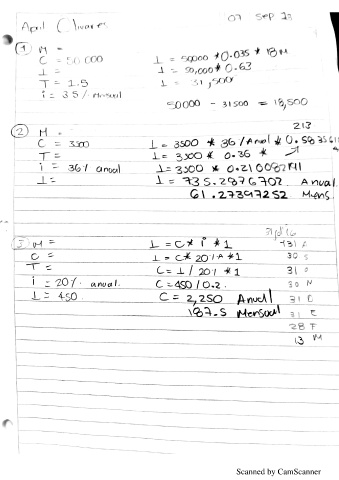 April Olivares 07 Sep 23
1 M =
C = 50.000 I = 50000 * 0.035 * 18M
I = I = 50,000 * 0.63
T = 1.5 I = 31,500
i = 3.5% Mensual
50000 - 31500 = 18,500
2 M = 213
C = 3500 I = 3500 * 36% Anual * 0.5835611
T = I = 3500 * 0.36 *
i = 36% anual I = 3500 * 0.2100821
I = I = 735.2876702 Anual
61.27397252 Mens.
3 M = I = C * i * 1
C = I = C * 20% A * 1 31 A
T = C = I / 20% * 1 30 S
i = 20% anual. C = 450 / 0.2. 31 O
I = 450. C = 2,250 Anual 30 N
187.5 Mensual 31 D
31 E
28 F
13 M
Scanned by CamScanner